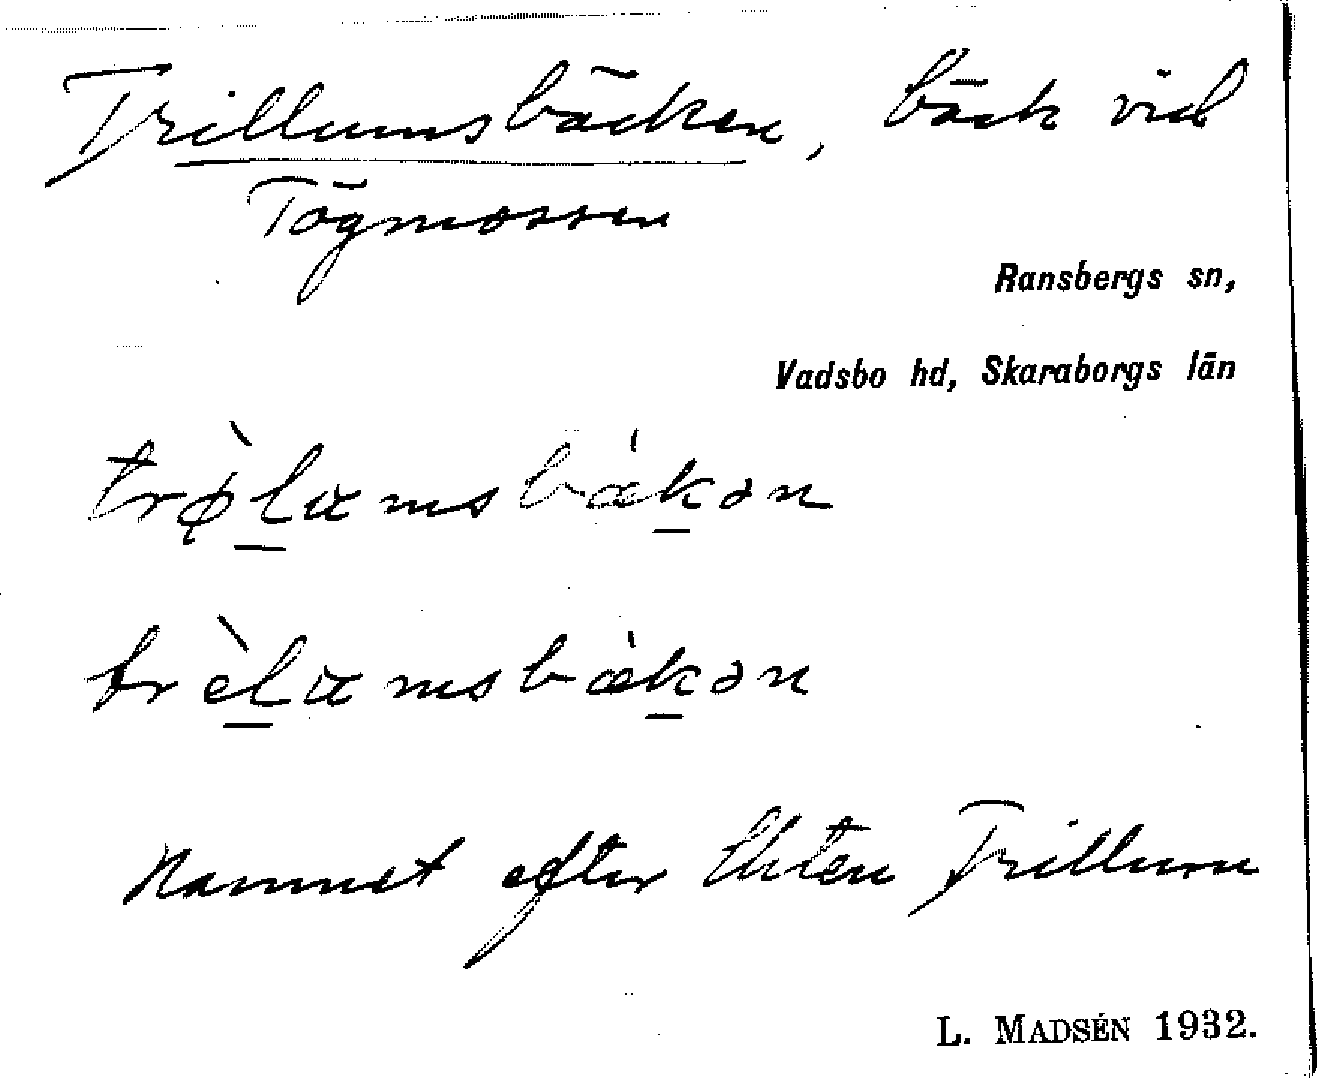 Trillumsbäcken, bäck vid
Tågmossen
Ransbergs sn,
Vadsbo hd, Skaraborgs län
trø̀lɑmsbǽkən
trèlɑmsbǽkən
Namnet efter Trillum
L. MADSÉN 1932.